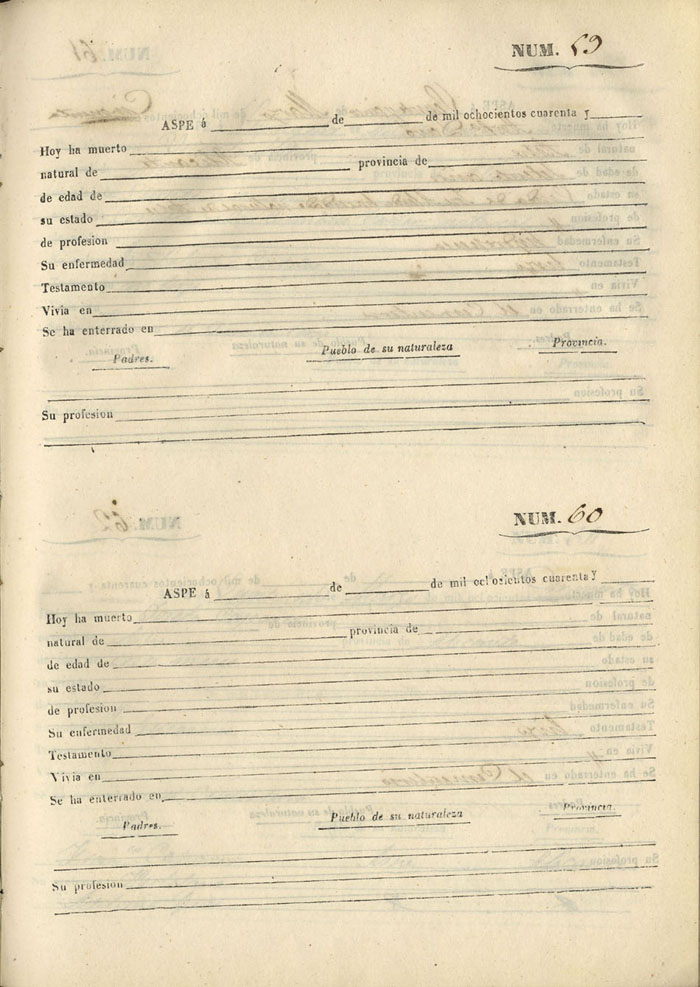 NUM. 59
ASPE á de de mil ochocientos cuarenta y
Hoy ha muerto
natural de provincia de
de edad de
su estado
de profesion
Su enfermedad
Testamento
Vivia en
Se ha enterrado en
Padres. Pueblo de su naturaleza Provincia.
Su profesion
NUM. 60
ASPE á de de mil ochocientos cuarenta y
Hoy ha muerto
natural de provincia de
de edad de
su estado
de profesion
Su enfermedad
Testamento
Vivia en
Se ha enterrado en
Padres. Pueblo de su naturaleza Provincia.
Su profesion